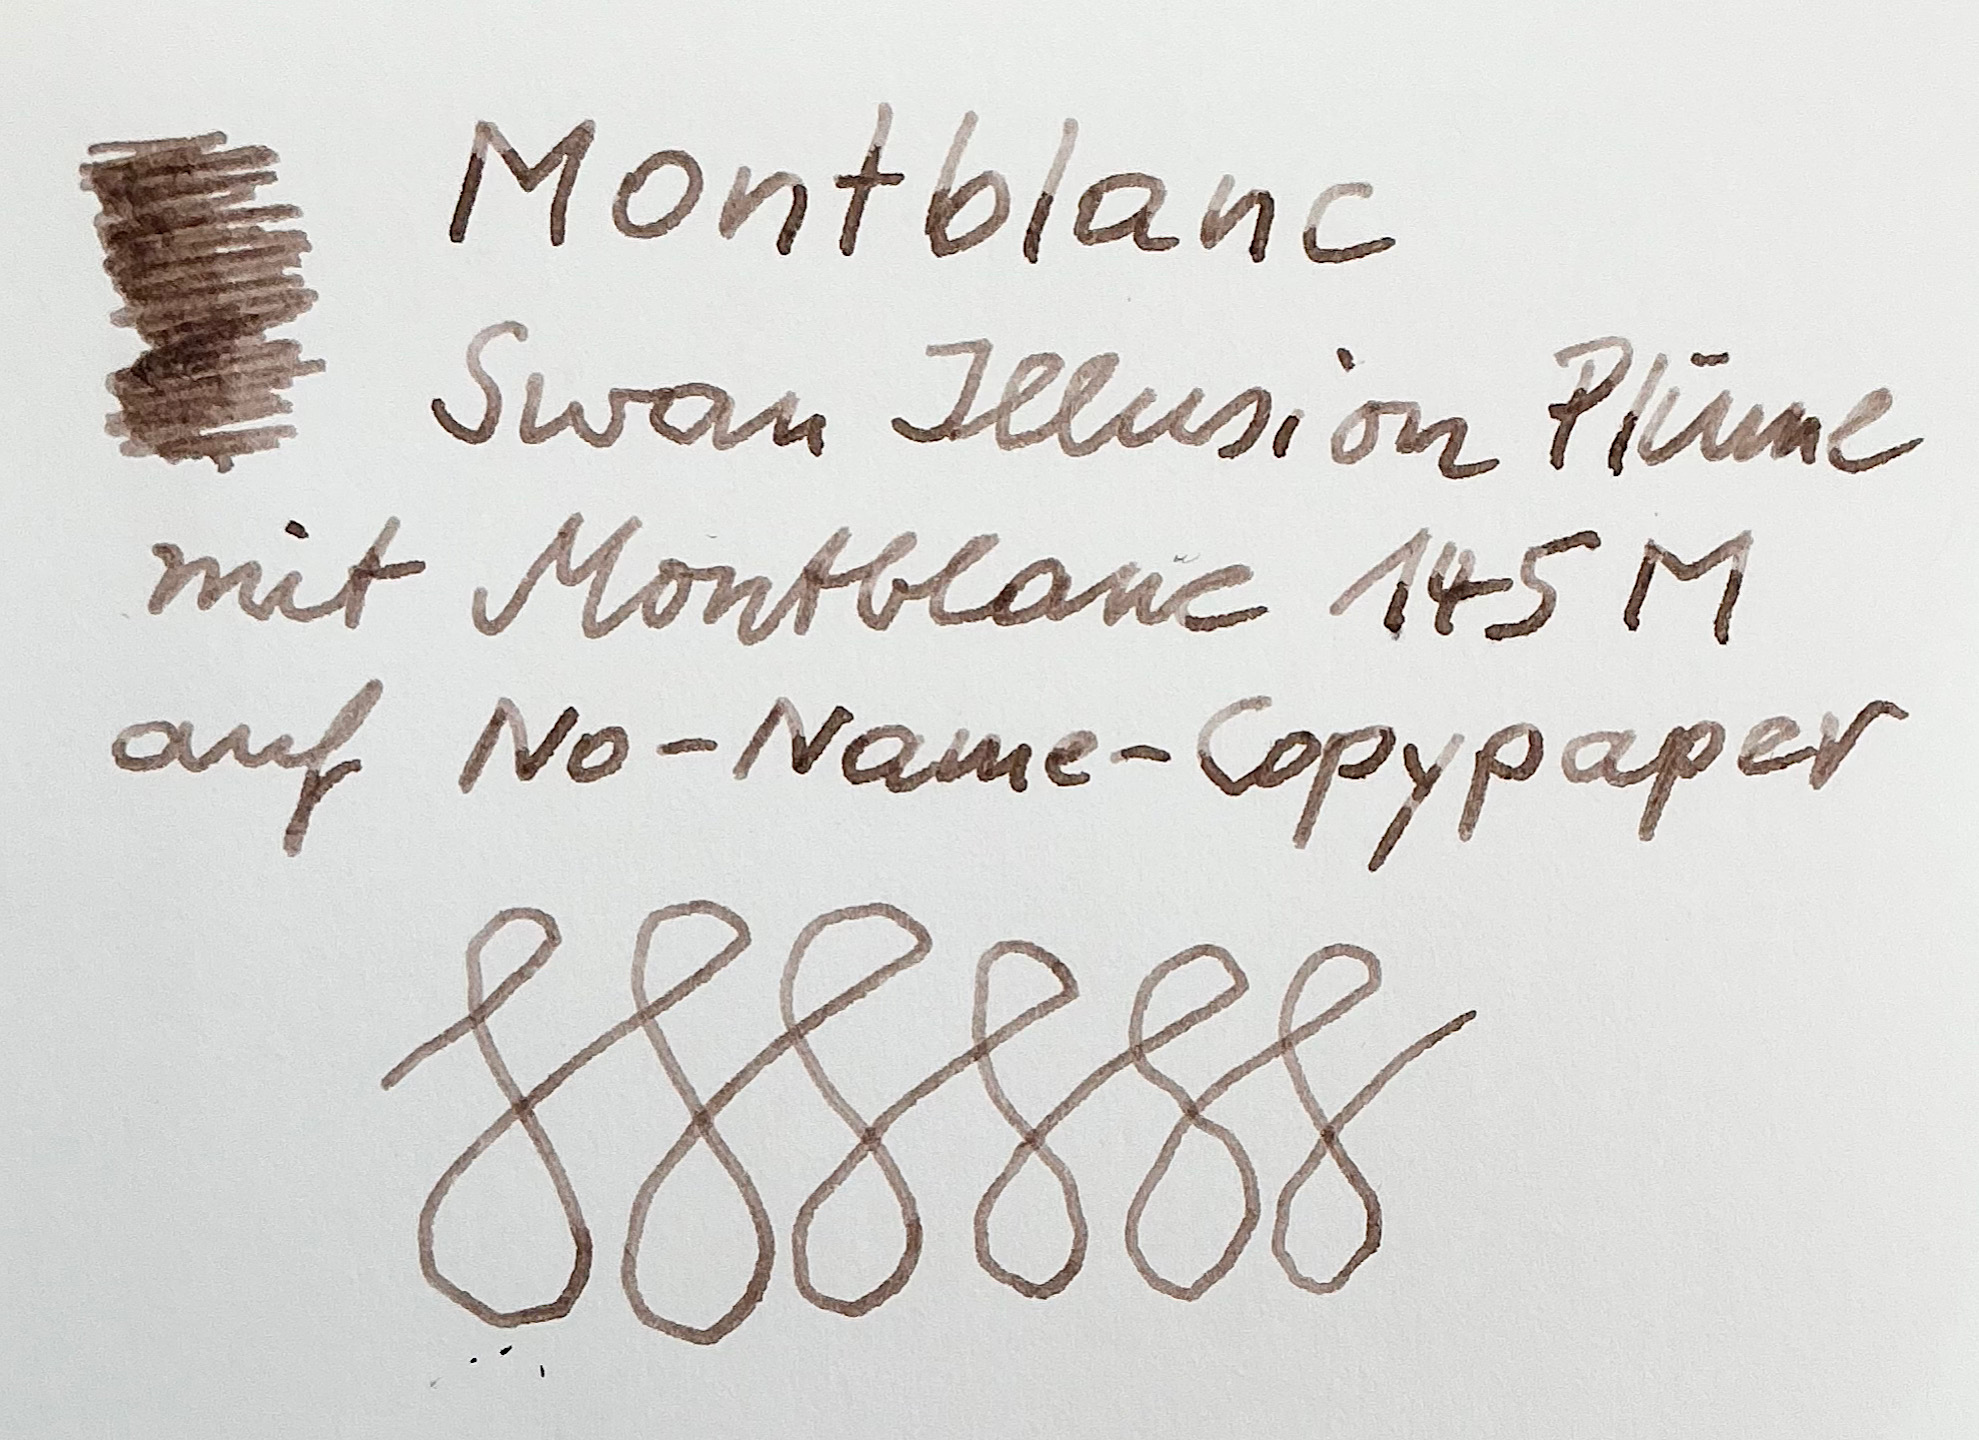 Montblanc
Swan Illusion Plūme
mit Montblanc 145 M
auf No-Name-Copypaper